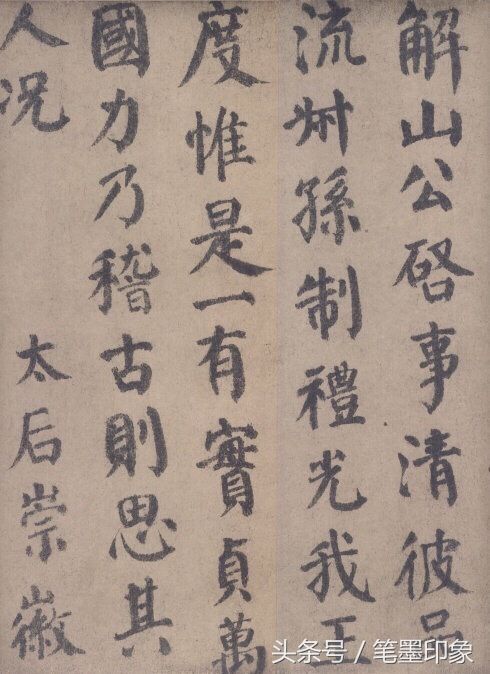 解山公啓事清彼品
流叔孫制禮光我王
度惟是一有實貞萬
國力乃稽古則思其
人况 太后崇徽
头条号 / 笔墨印象